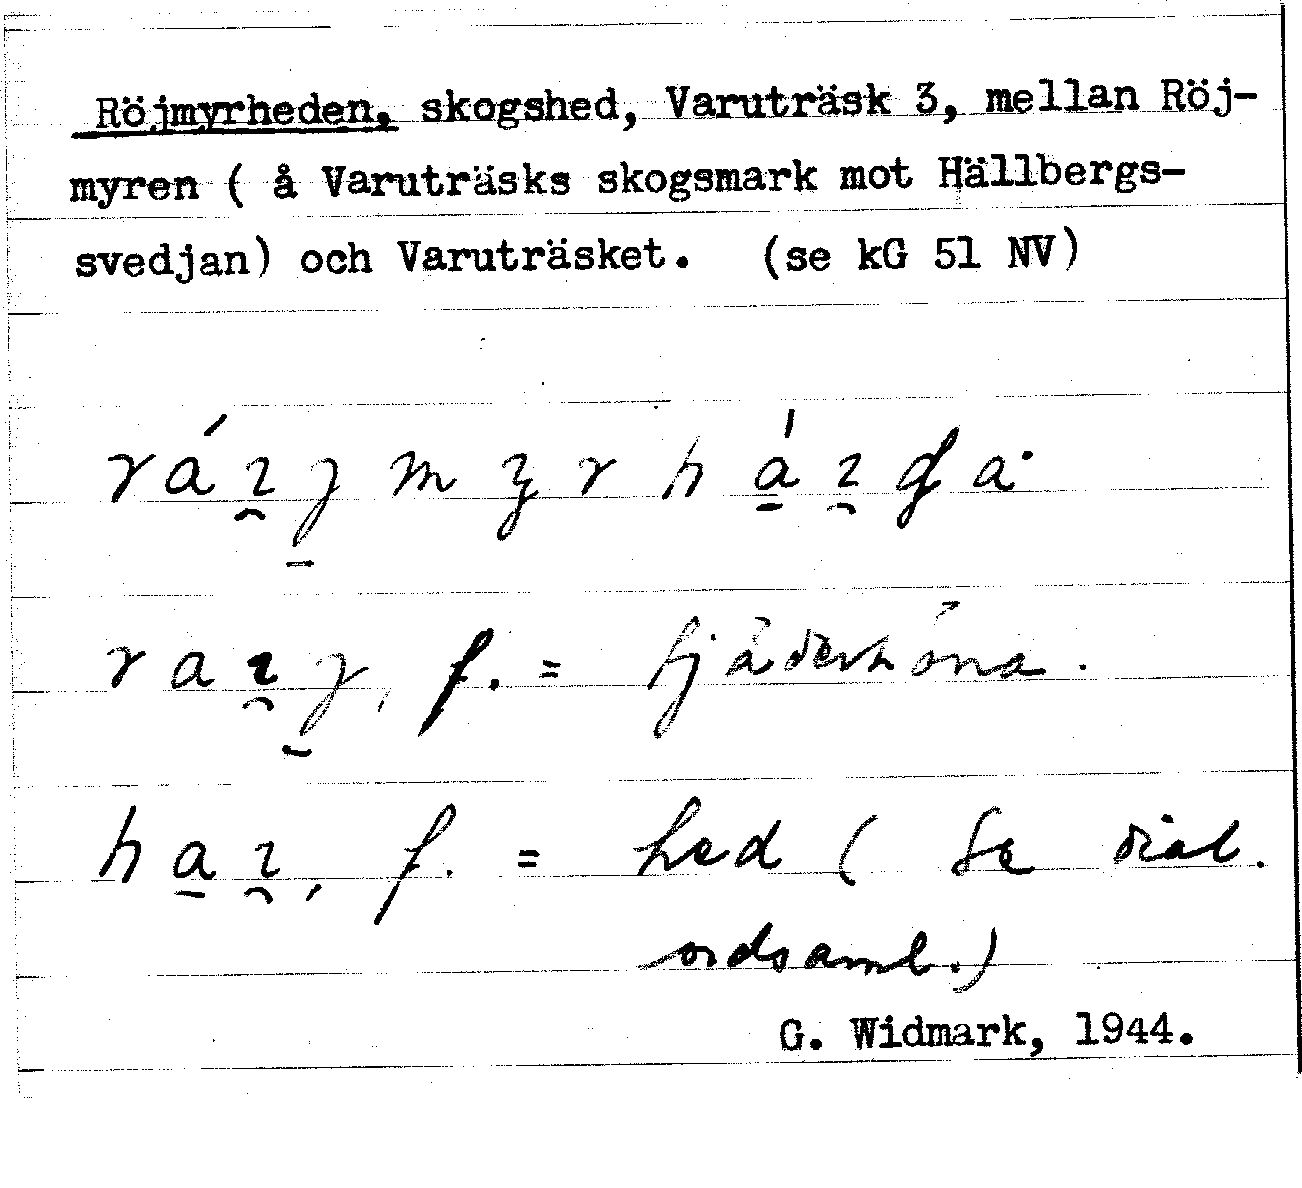 Röjmyrheden, skogshed, Varuträsk 3, mellan Röj-
myren ( å Varuträsks skogsmark mot Hällbergs-
svedjan) och Varuträsket. (se kG 51 NV)
f. = fjäderhöna.
f. = hed ( Se dial.
ordsaml.)
G. Widmark, 1944.